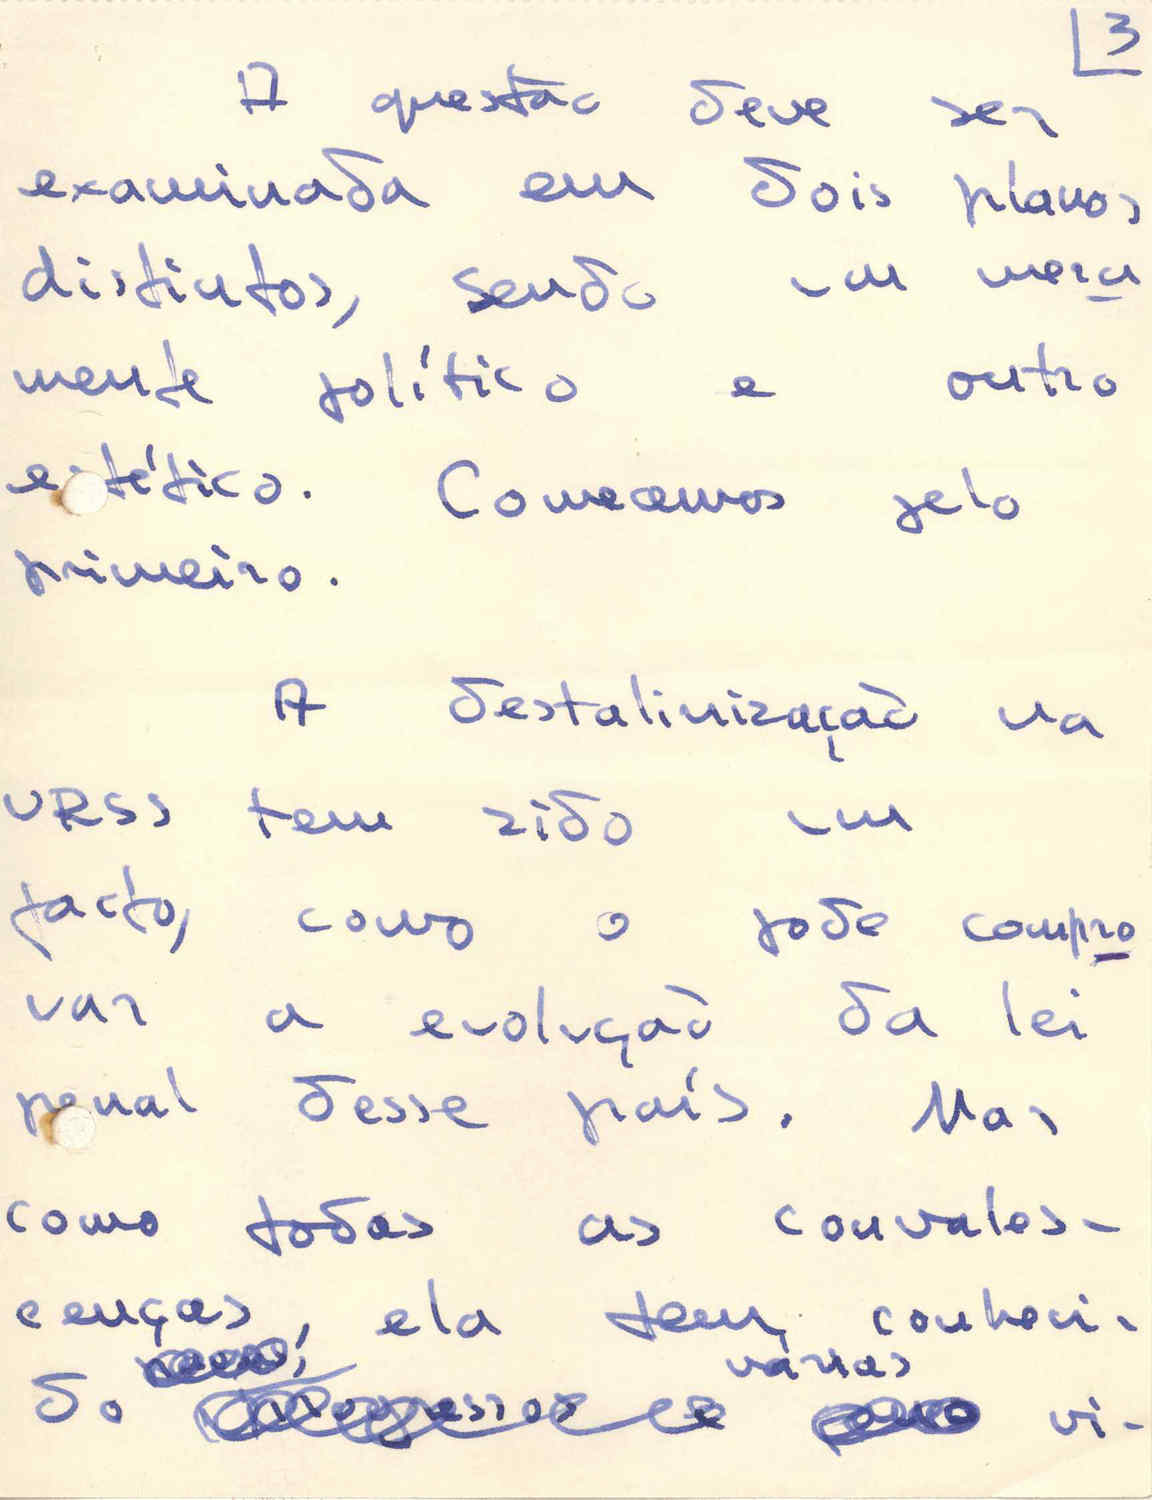 3
A questão deve ser
examinada em dois planos
distintos, sendo um mera
mente político e outro
estético. Comecemos pelo
primeiro.
A destalinização na
URSS tem sido um
facto, como o pode compro
var a evolução da lei
penal desse país. Mas
como todas as convales-
cenças, ela tem conheci-
várias
do e vi-